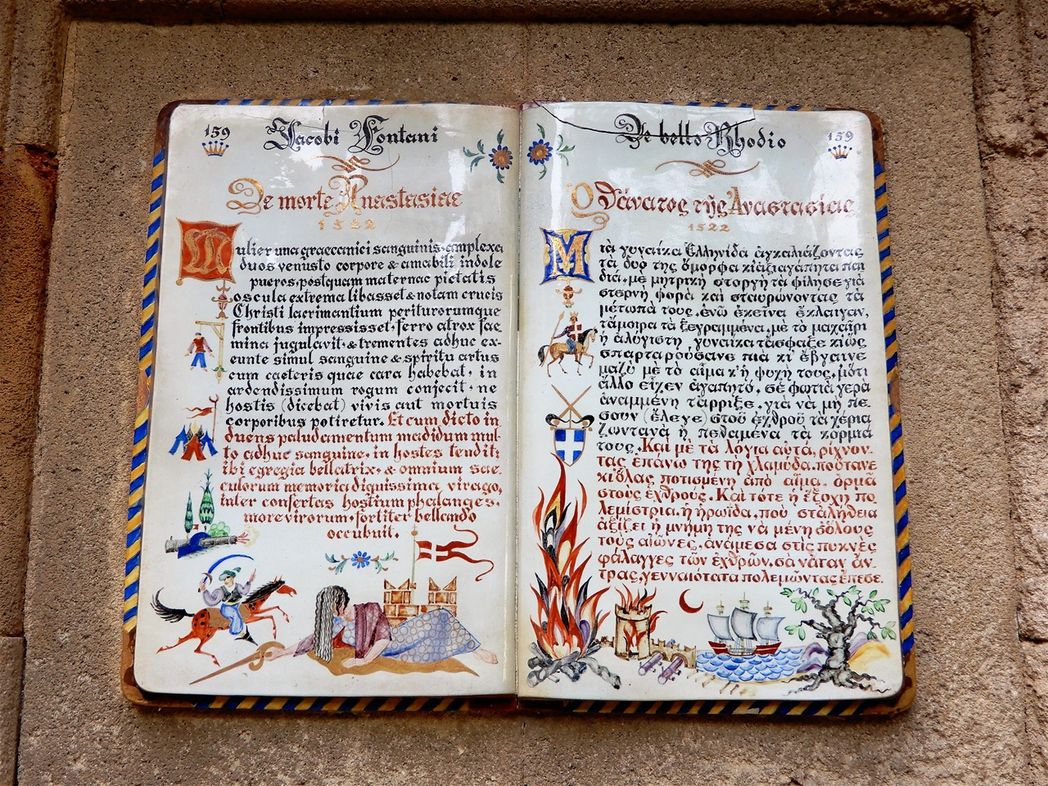 159
Jacobi Fontani
De morte Anastasiae
1522
Mulier una graecanici sanguinis, amplexa
duos venusto corpore & amabili indole
pueros, postquam maternae pietatis
oscula extrema libasset & notam crucis
Christi lacrimantium periturorumque
frontibus impressisset, ferro atrox fae
mina jugulavit & trementes adhuc ex-
eunte simul sanguine & spiritu artus
cum caeteris quae cara habebat, in
ardendissimum rogum conjecit, ne
hostis (dicebat) vivis aut mortuis
corporibus potiretur. Et cum dicto in
duens paludamentum madidum mul-
to adhuc sanguine, in hostes tendit;
ibi egregia bellatrix, & omnium sae
culorum memoria dignissima virago,
inter confertas hostium phalanges,
more virorum, fortiter bellando
occubuit.
De bello Rhodio
159
Ὁ θάνατος τῆς Ἀναστασίας
1522
Μιὰ γυναίκα Ἑλληνίδα ἀγκαλιάζοντας
τὰ δυό της ὄμορφα κι ἀξιαγάπητα παι
διά, μὲ μητρικὴ στοργὴ τὰ φίλησε γιὰ
στερνὴ φορὰ καὶ σταυρώνοντας τὰ
μέτωπά τους, ἐνῶ ἐκεῖνα ἔκλαιγαν,
τἄμοιρα τὰ ξεγραμμένα, μὲ τὸ μαχαίρι
ἡ ἀλύγιστη γυναίκα τἄσφαξε κι ὅπως
σπαρταρούσανε πιὰ κι ἔβγαινε
μαζὺ μὲ τὸ αἷμα κ' ἡ ψυχή τους, μ' ὅτι
ἄλλο εἶχεν ἀγαπητό, σὲ φωτιὰ γερὰ
ἀναμμένη τἄρριξε, γιὰ νὰ μὴ πέ-
σουν (ἔλεγε) στοῦ ἐχθροῦ τὰ χέρια
ζωντανὰ ἢ πεθαμένα τὰ κορμιά
τους. Καὶ μὲ τὰ λόγια αὐτά, ρίχνον-
τας ἐπάνω της τὴ χλαμύδα, ποὔτανε
κιόλας ποτισμένη ἀπὸ αἷμα, ὁρμᾶ
στοὺς ἐχθρούς. Καὶ τότε ἡ ἔξοχη πο
λεμίστρια, ἡ ἡρωΐδα, ποὺ στ' ἀλήθεια
ἀξίζει ἡ μνήμη της νὰ μένη σ' ὅλους
τοὺς αἰῶνες, ἀνάμεσα στὶς πυκνὲς
φάλαγγες τῶν ἐχθρῶν, σὰ νἆταν ἄν-
τρας, γενναιότατα πολεμώντας ἔπεσε.